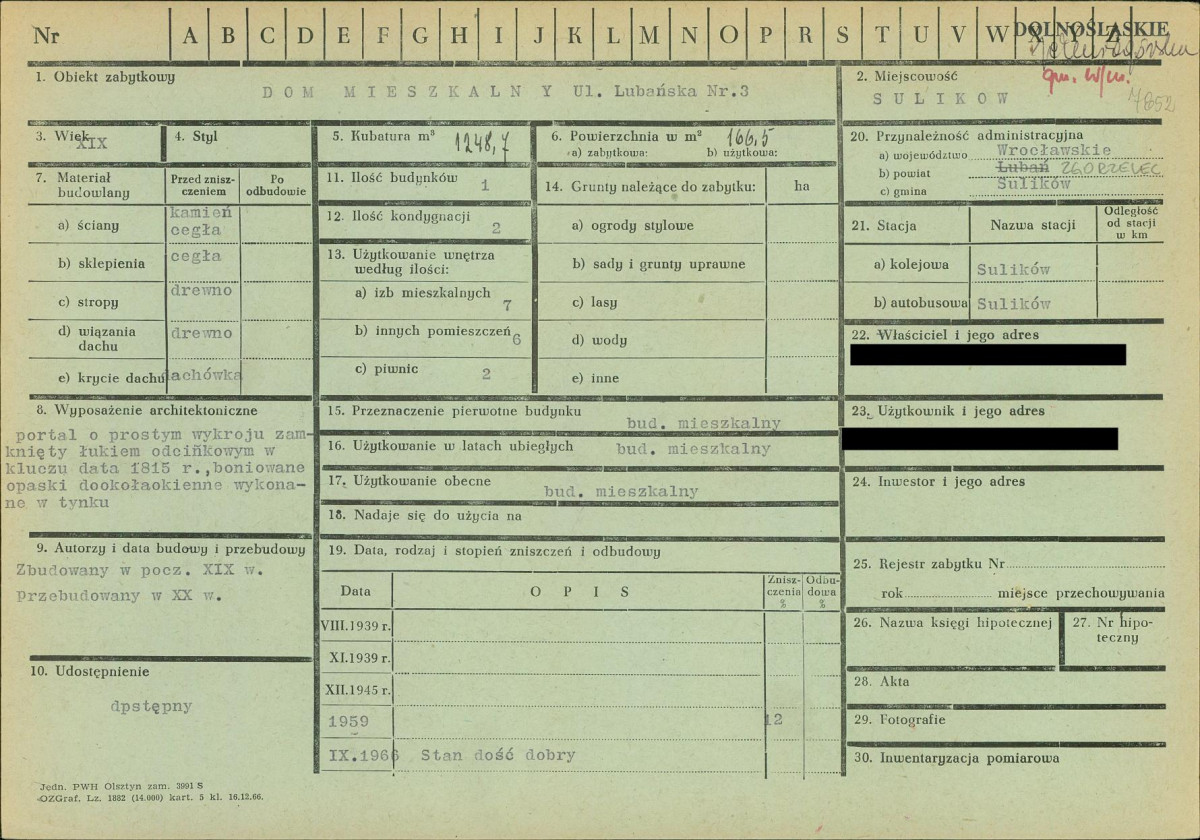 Nr A B C D E F G H I J K L M N O P R S T U V W X Y Z
DOLNOŚLĄSKIE
Jeleniogórska
gm. w/m.
7852
1. Obiekt zabytkowy
DOM MIESZKALNY Ul. Lubańska Nr.3
2. Miejscowość
SULIKOW
3. Wiek
XIX
4. Styl
5. Kubatura m³ 1248,7
6. Powierzchnia w m² 166,5
a) zabytkowa: b) użytkowa:
7. Materiał budowlany
Przed znisz-
czeniem
Po
odbudowie
a) ściany
kamień
cegła
b) sklepienia
cegła
c) stropy
drewno
d) wiązania
dachu
drewno
e) krycie dachu
dachówka
8. Wyposażenie architektoniczne
portal o prostym wykroju zam-
knięty łukiem odcińkowym w
kluczu data 1815 r.,boniowane
opaski dookołaokienne wykona-
ne w tynku
9. Autorzy i data budowy i przebudowy
Zbudowany w pocz. XIX w.
Przebudowany w XX w.
10. Udostępnienie
dpstępny
11. Ilość budynków 1
12. Ilość kondygnacji 2
13. Użytkowanie wnętrza
według ilości:
a) izb mieszkalnych 7
b) innych pomieszczeń 6
c) piwnic 2
14. Grunty należące do zabytku: ha
a) ogrody stylowe
b) sady i grunty uprawne
c) lasy
d) wody
e) inne
15. Przeznaczenie pierwotne budynku
bud. mieszkalny
16. Użytkowanie w latach ubiegłych bud. mieszkalny
17. Użytkowanie obecne
bud. mieszkalny
18. Nadaje się do użycia na
19. Data, rodzaj i stopień zniszczeń i odbudowy
Data OPIS
Znisz-
czenia
%
Odbu-
dowa
%
VIII.1939 r.
XI.1939 r.
XII.1945 r.
1959 12
IX.1966 Stan dość dobry
20. Przynależność administracyjna
a) województwo Wrocławskie
b) powiat Lubań ZGORZELEC
c) gmina Sulików
21. Stacja Nazwa stacji
Odległość
od stacji
w km
a) kolejowa Sulików
b) autobusowa Sulików
22. Właściciel i jego adres
23. Użytkownik i jego adres
24. Inwestor i jego adres
25. Rejestr zabytku Nr
rok miejsce przechowywania
26. Nazwa księgi hipotecznej
27. Nr hipo-
teczny
28. Akta
29. Fotografie
30. Inwentaryzacja pomiarowa
Jedn. PWH Olsztyn zam. 3991 S
OZGraf. Lz. 1882 (14.000) kart. 5 kl. 16.12.66.